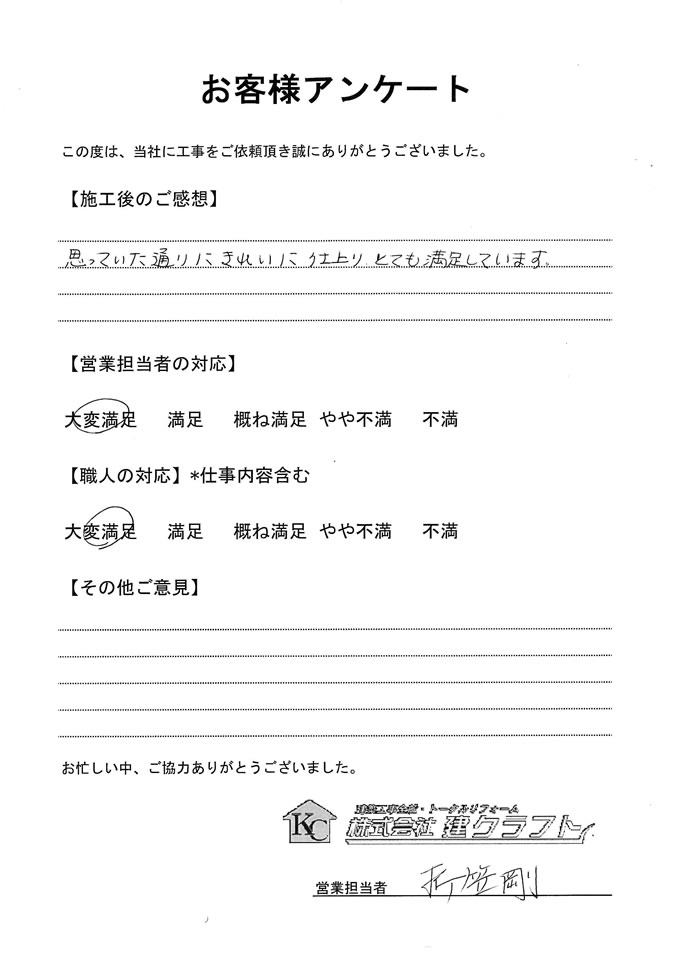 お客様アンケート
この度は、当社に工事をご依頼頂き誠にありがとうございました。
【施工後のご感想】
思っていた通りにきれいに仕上り、とても満足しています。
【営業担当者の対応】
大変満足 満足 概ね満足 やや不満 不満
【職人の対応】*仕事内容含む
大変満足 満足 概ね満足 やや不満 不満
【その他ご意見】
お忙しい中、ご協力ありがとうございました。
建築工事全般・トータルリフォーム
KC 株式会社 建クラフト
営業担当者 折笠剛